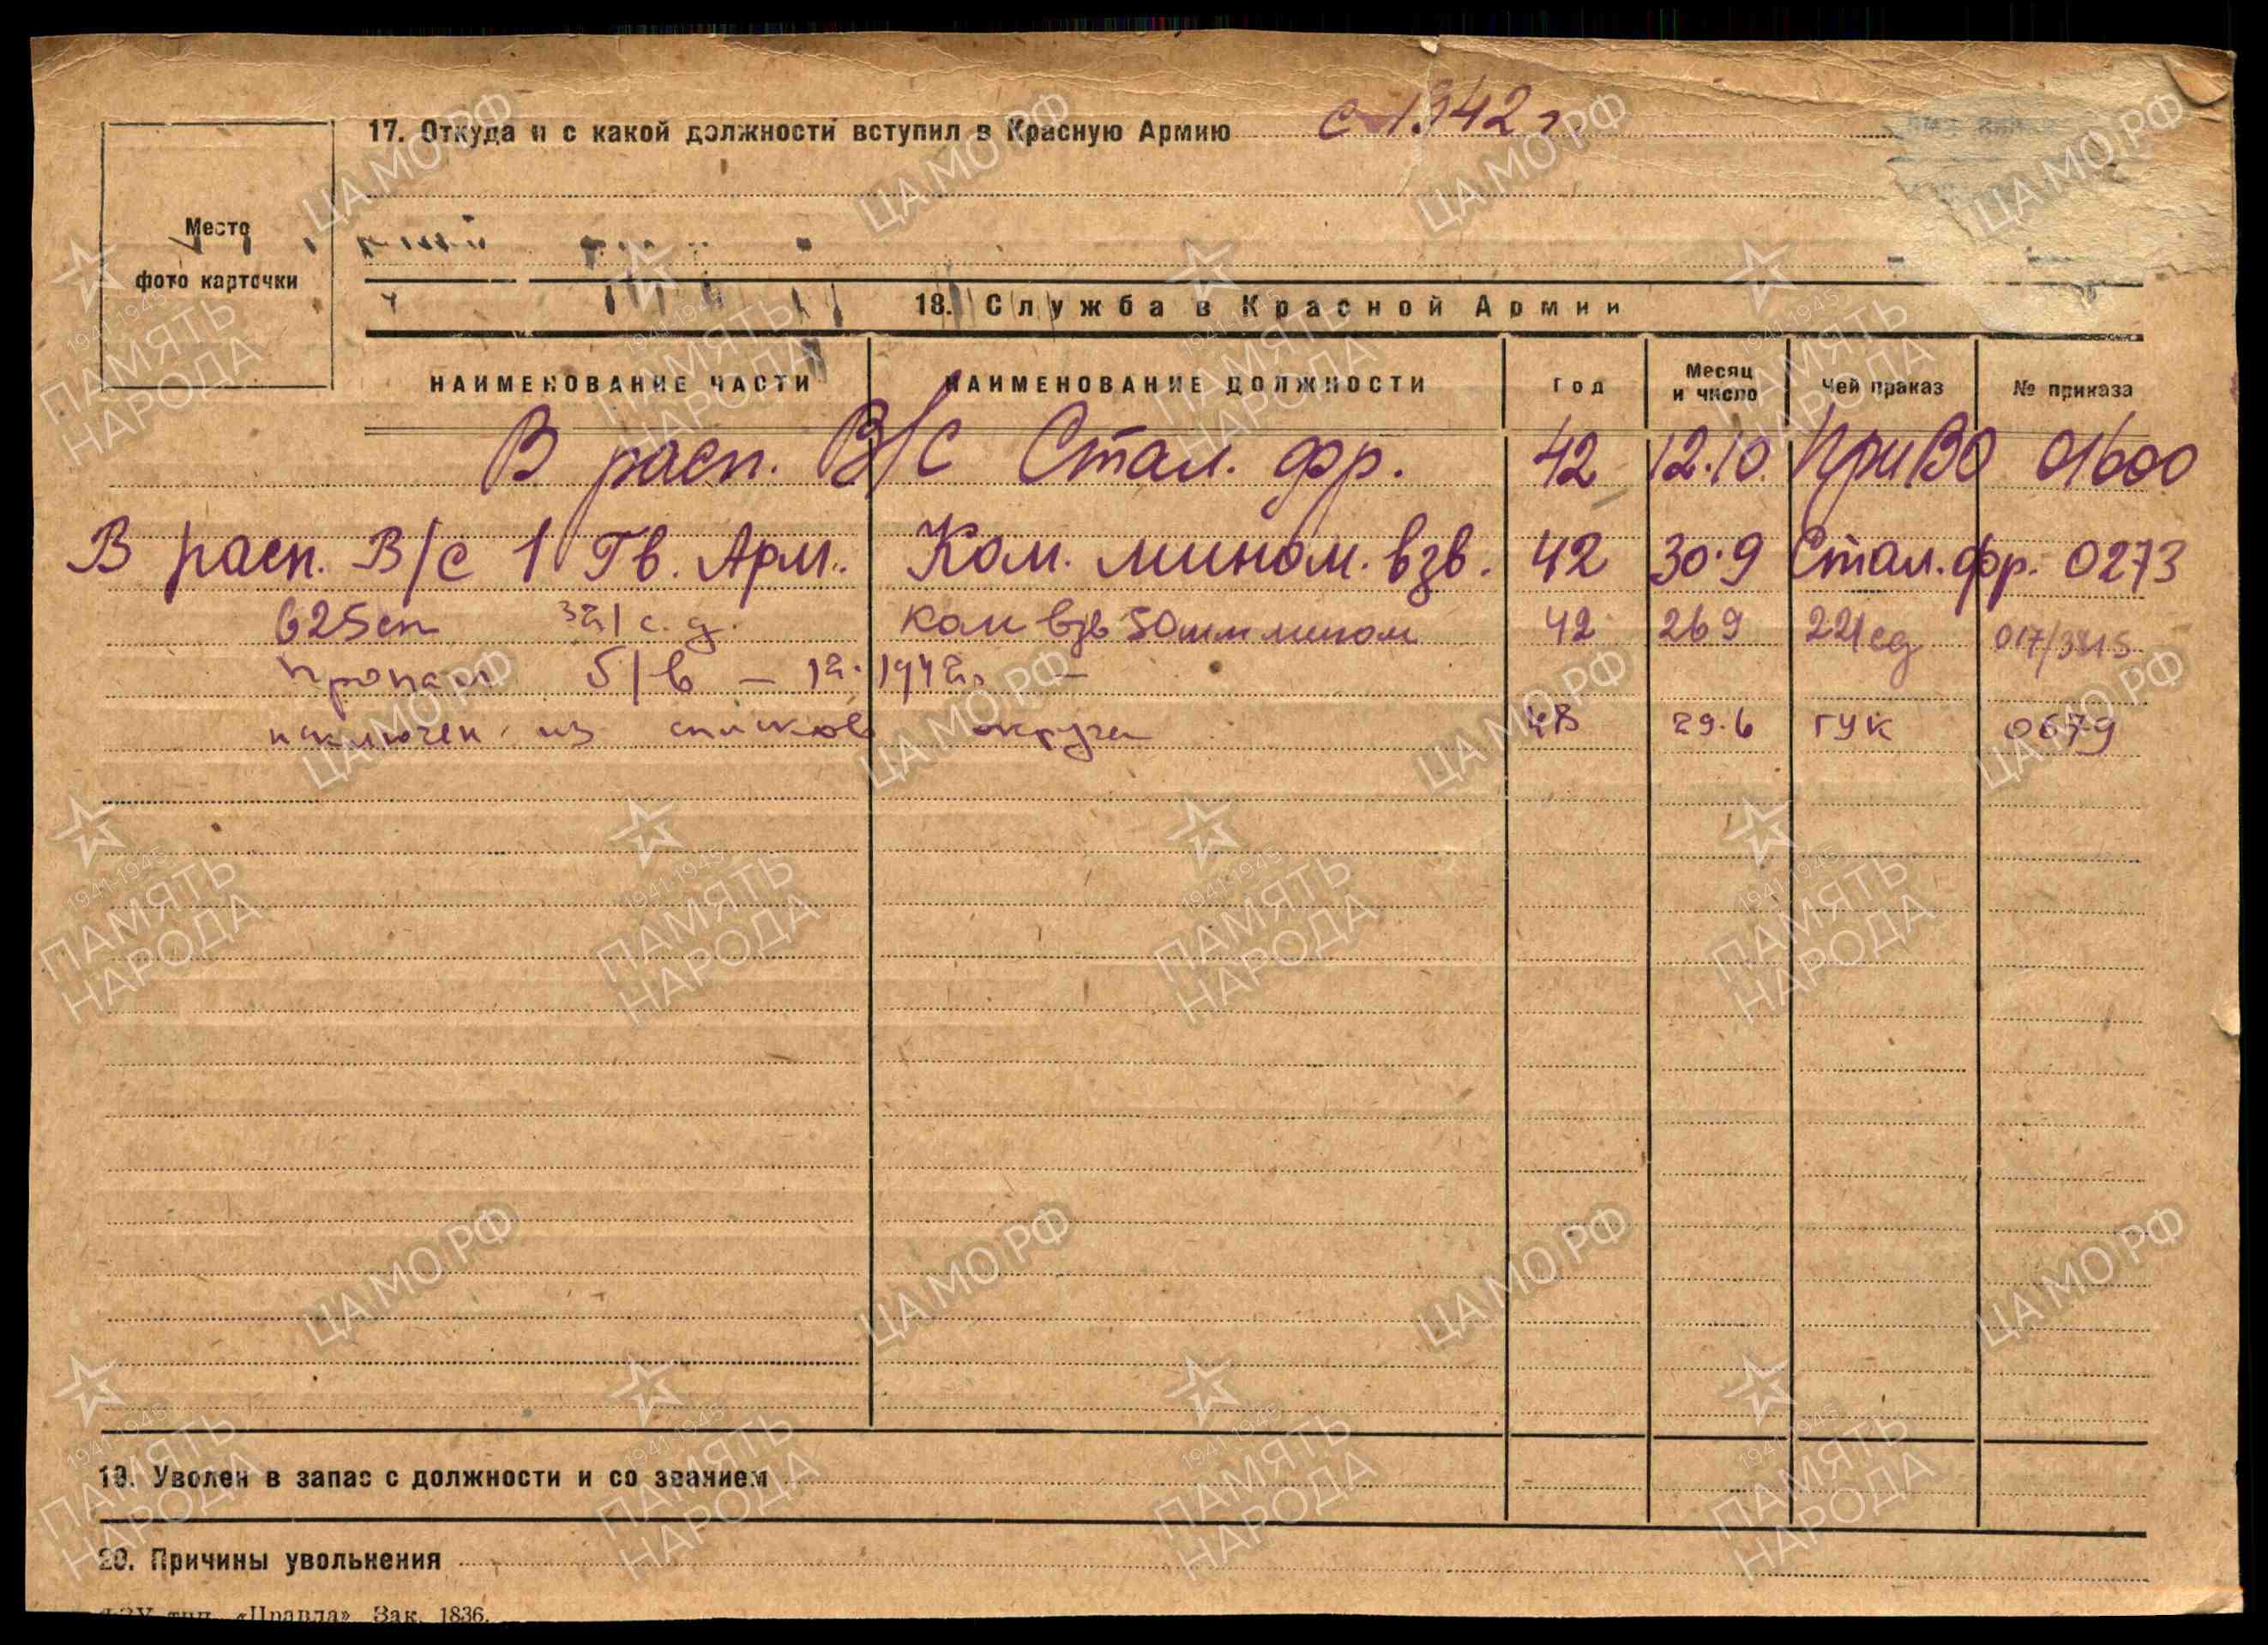 17. Откуда и с какой должности вступил в Красную Армию с 1942 г
Место
фото карточки
18. Служба в Красной Армии
НАИМЕНОВАНИЕ ЧАСТИ НАИМЕНОВАНИЕ ДОЛЖНОСТИ Год Месяц и число Чей приказ № приказа
В расп. В/С Стал. фр. 42 12.10. ПриВО 01600
В расп. В/с 1 Гв. Арм. Ком. мином. взв. 42 30.9 Стал. фр. 0273
625сп с.д. Ком взв 50мм мином 42 26 9 221сд
пропал б/в – 12. 1942г. –
исключен из списков округа 43 29.6 ГУК 0679
19. Уволен в запас с должности и со званием
20. Причины увольнения
тип. «Правда» Зак. 1836.
ЦАМО.РФ
1941-1945
ПАМЯТЬ
НАРОДА